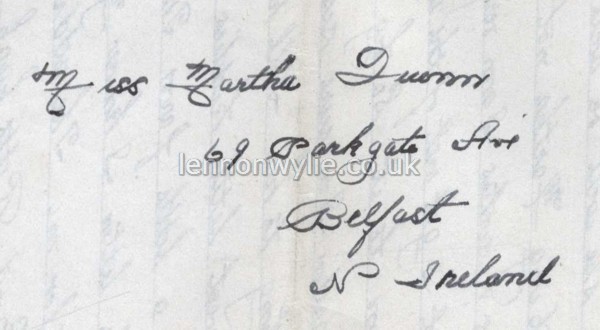 Miss Martha Quinn
69 Parkgate Ave
lennonwylie.co.uk
Belfast
N Ireland